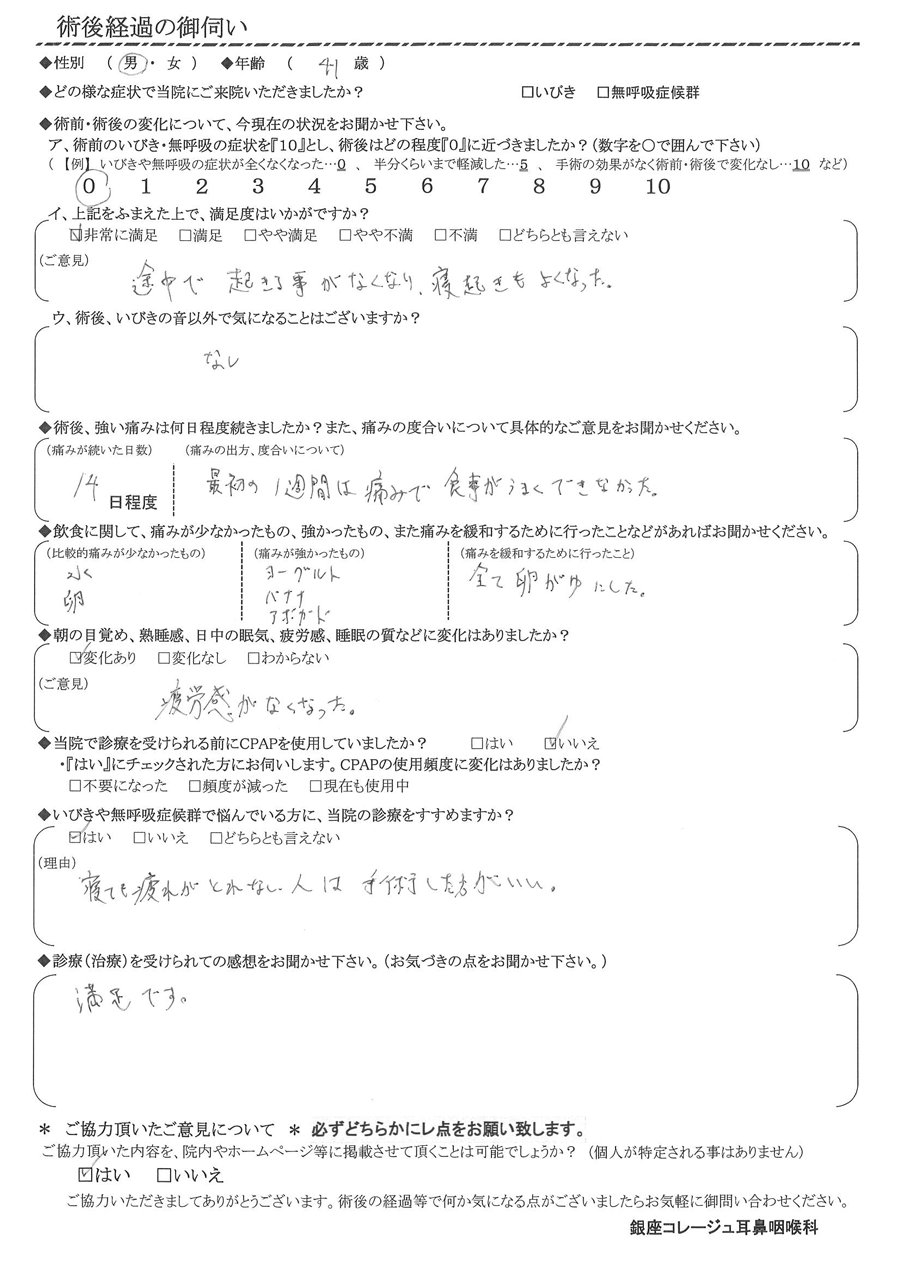 術後経過の御伺い
◆性別 （ 男 ・ 女 ） ◆年齢 （ 41 歳 ）
◆どの様な症状で当院にご来院いただきましたか？ □いびき □無呼吸症候群
◆術前・術後の変化について、今現在の状況をお聞かせ下さい。
ア、術前のいびき・無呼吸の症状を『10』とし、術後はどの程度『0』に近づきましたか？（数字を○で囲んで下さい）
（ 【例】 いびきや無呼吸の症状が全くなくなった…0 、 半分くらいまで軽減した…5 、 手術の効果がなく術前・術後で変化なし…10 など）
0 1 2 3 4 5 6 7 8 9 10
イ、上記をふまえた上で、満足度はいかがですか？
☑非常に満足 □満足 □やや満足 □やや不満 □不満 □どちらとも言えない
（ご意見）
途中で 起きる事がなくなり、寝起きもよくなった。
ウ、術後、いびきの音以外で気になることはございますか？
なし
◆術後、強い痛みは何日程度続きましたか？また、痛みの度合いについて具体的なご意見をお聞かせください。
（痛みが続いた日数） （痛みの出方、度合いについて）
14 日程度 最初の1週間は痛みで食事がうまくできなかった。
◆飲食に関して、痛みが少なかったもの、強かったもの、また痛みを緩和するために行ったことなどがあればお聞かせください。
（比較的痛みが少なかったもの） （痛みが強かったもの） （痛みを緩和するために行ったこと）
水 ヨーグルト 全て卵がゆにした。
卵 バナナ
アボガド
◆朝の目覚め、熟睡感、日中の眠気、疲労感、睡眠の質などに変化はありましたか？
☑変化あり □変化なし □わからない
（ご意見）
疲労感がなくなった。
◆当院で診療を受けられる前にCPAPを使用していましたか？ □はい ☑いいえ
・『はい』にチェックされた方にお伺いします。CPAPの使用頻度に変化はありましたか？
□不要になった □頻度が減った □現在も使用中
◆いびきや無呼吸症候群で悩んでいる方に、当院の診療をすすめますか？
☑はい □いいえ □どちらとも言えない
（理由）
寝ても疲れがとれない人は手術した方がいい。
◆診療（治療）を受けられての感想をお聞かせ下さい。（お気づきの点をお聞かせ下さい。）
満足です。
＊ ご協力頂いたご意見について ＊ 必ずどちらかにレ点をお願い致します。
ご協力頂いた内容を、院内やホームページ等に掲載させて頂くことは可能でしょうか？ （個人が特定される事はありません）
☑はい □いいえ
ご協力いただきましてありがとうございます。術後の経過等で何か気になる点がございましたらお気軽に御問い合わせください。
銀座コレージュ耳鼻咽喉科